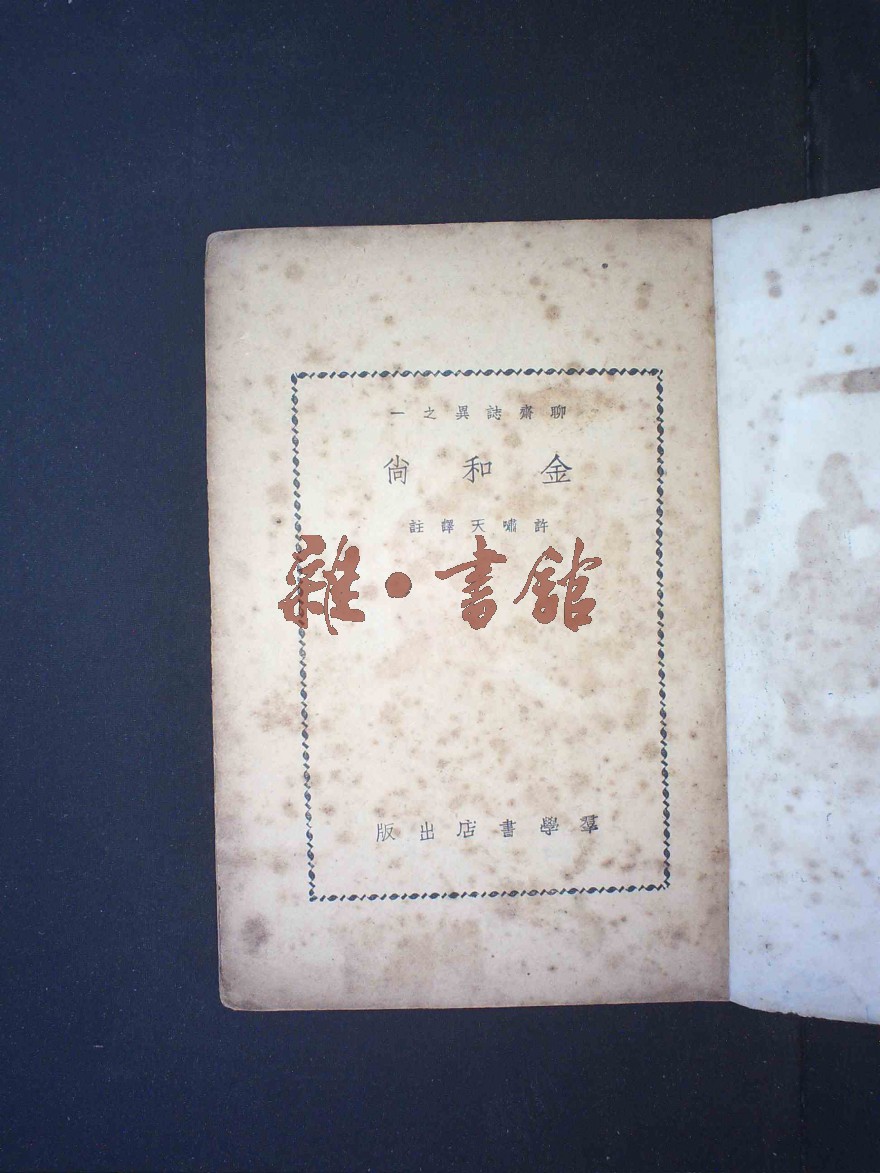 聊齋誌異之一
金和尙
許嘯天譯註
雜·書館
羣學書店出版